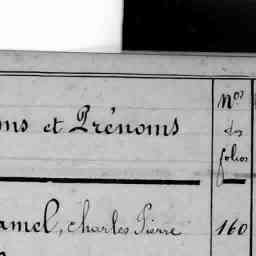 ms et Prénoms
Nos
des
folios
amel, charles Pierre
160